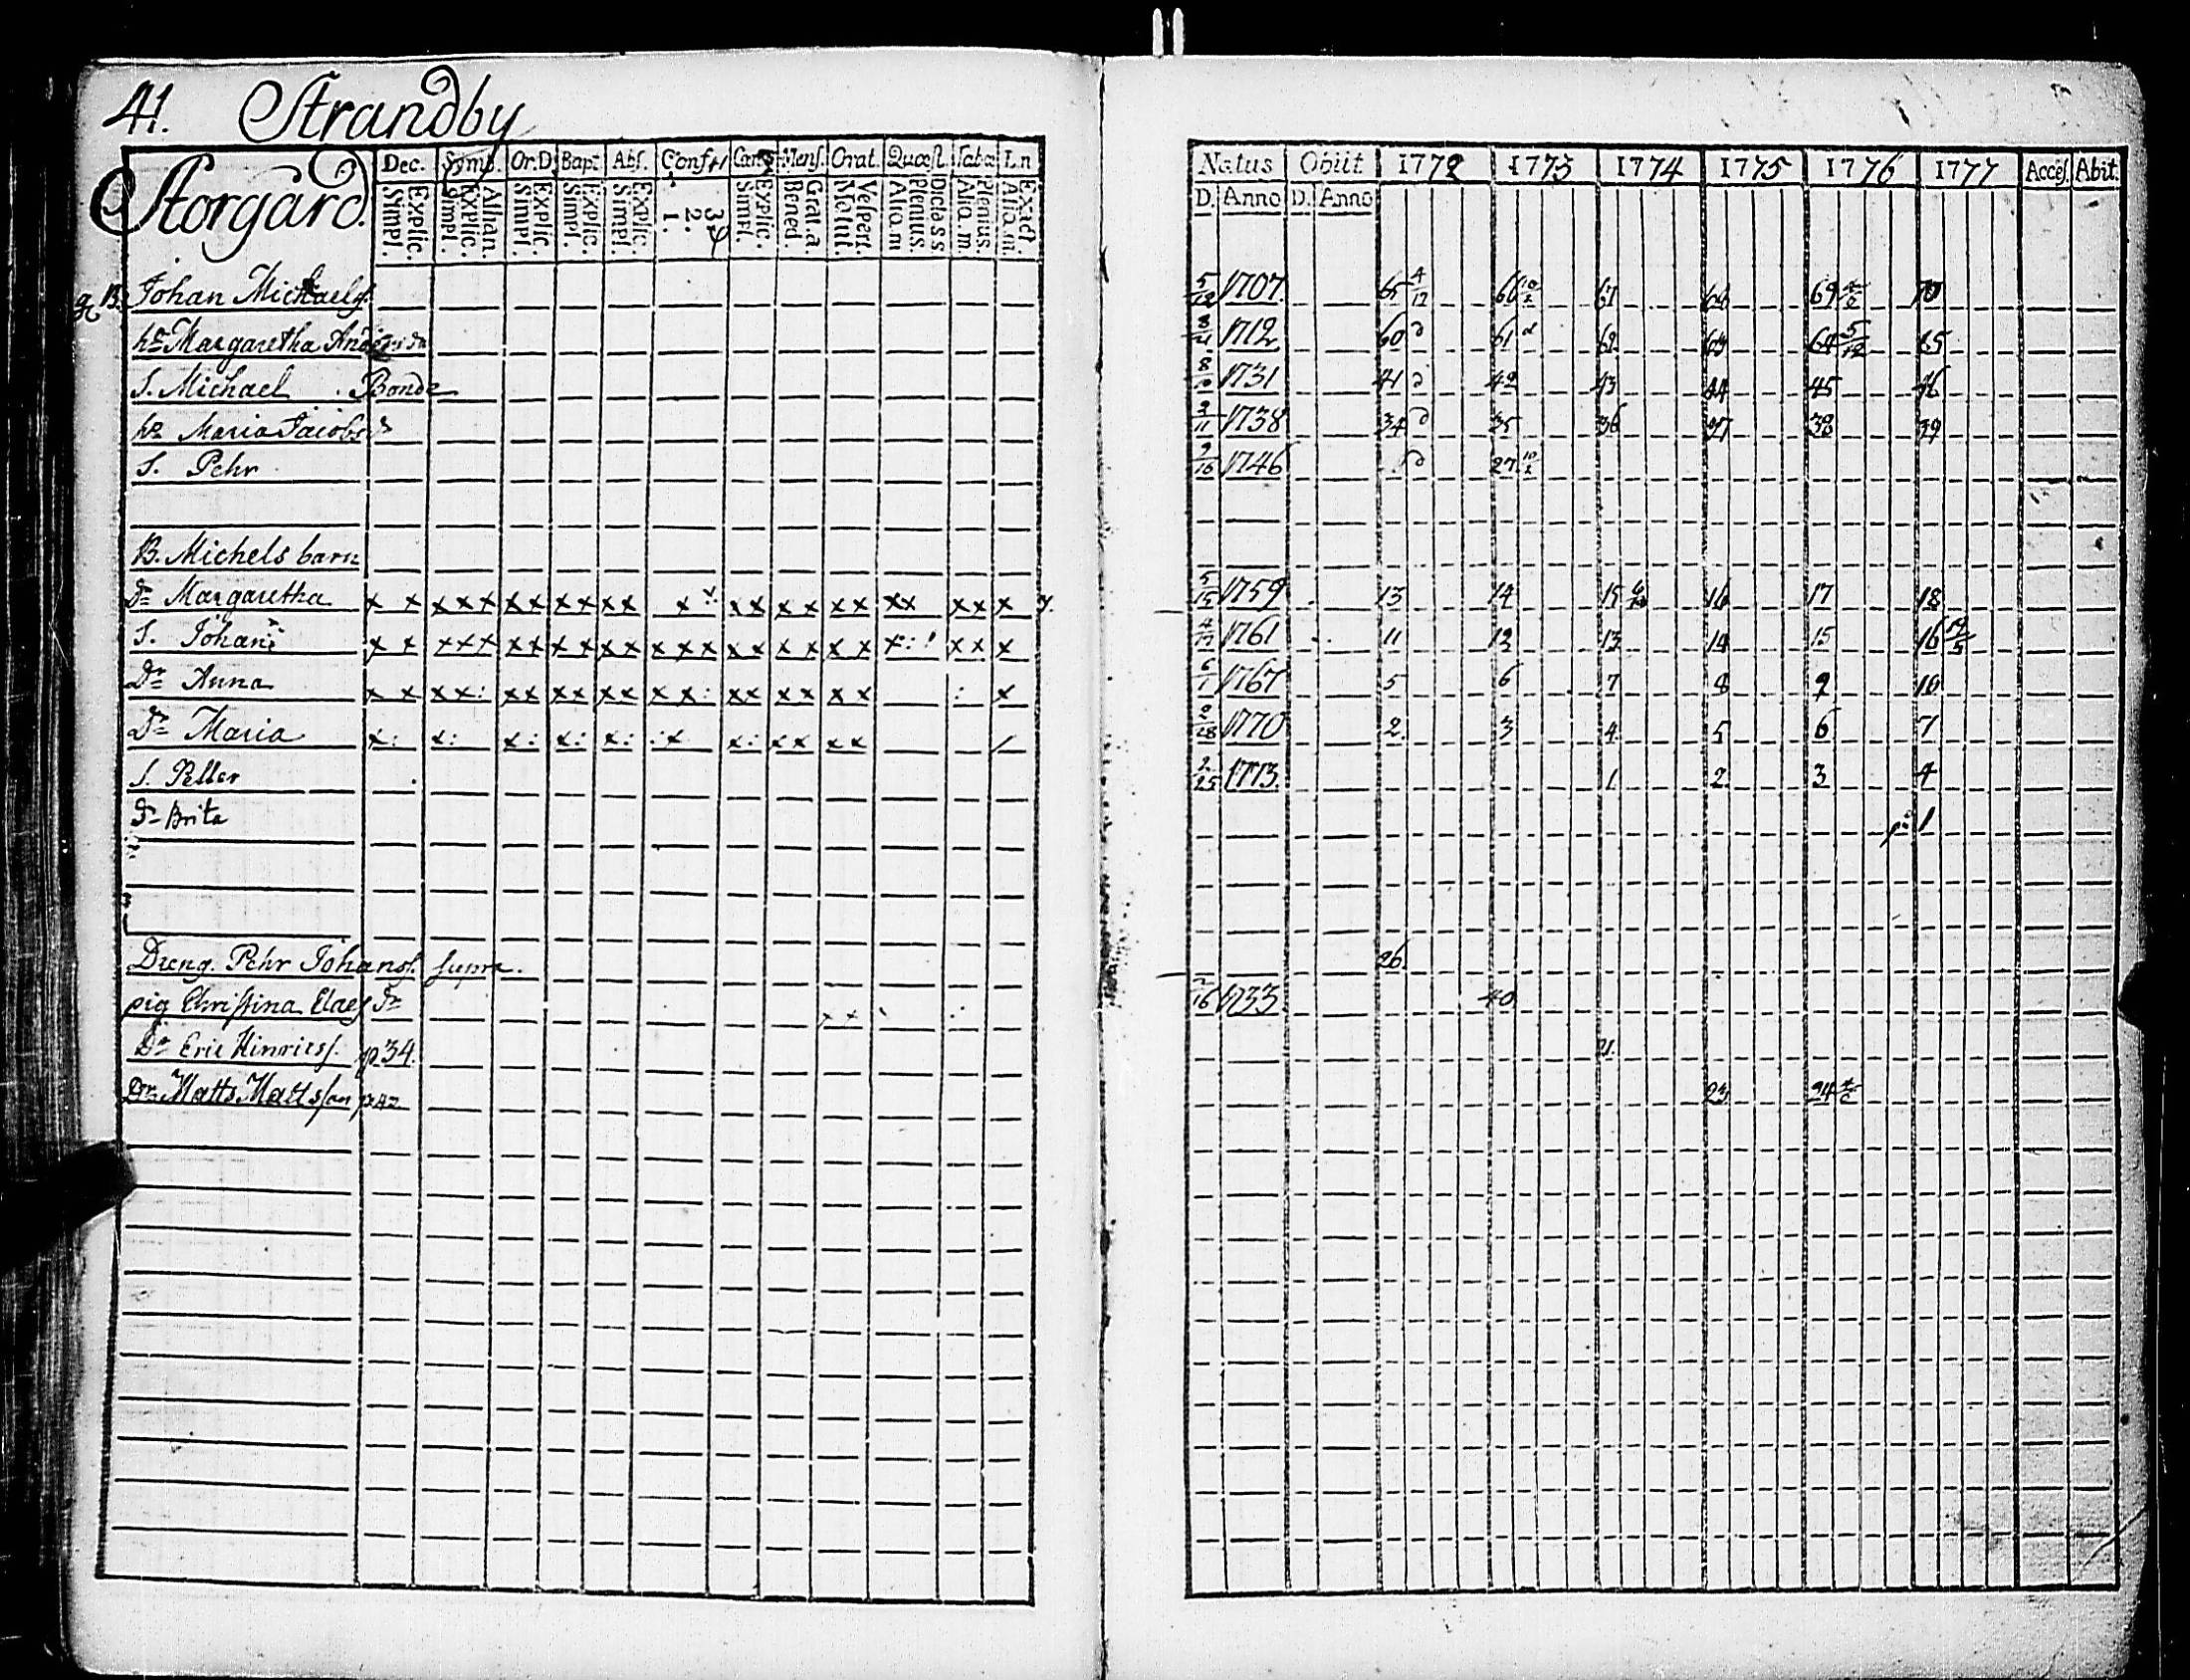 41. Strandby
Storgård.
Dec. Symb. Or.D Bapt Abs. Conf. Cœn. Mens. Orat. Quæst. Tabœ L.n
Simpl. Explic. Simpl. Explic. Athan. Simpl. Explic. Simpl. Explic. Simpl. Explic. 1. 2. 3. 4 Simpl. Explic. Bened. Grat.a. Matut. Vespert. Aliq.m Plenius. Aliq.m. Plenius. Aliq.m. Exact.
Natus Obiit 1772 1773 1774 1775 1776 1777 Acces. Abit.
D. Anno D. Anno
B. Johan Michaels. 5/12 1707 65 4/12 66 10/2 67 68 69 70
hu Margaretha Anders dr 1712 60 61 62 63 64 5/12 65
S. Michael Bonde 8 1731 41 42 43 44 45 46
hu Maria Jacobs dr 2/11 1738 34 35 36 37 38 39
S. Pehr 1746 27 10/2
B. Michels barn
Dr Margaretha x x x x x x x x x x x x x x x x x x x x x x x 5/15 1759 13 14 15 16 17 18
S. Johan x x x x x x x x x x x x x x x x x x x x x x x 1761 11 12 13 14 15 16 19/5
Dr Anna x x x x : x x x x x x x x : x x x x x x : x 6/1 1767 5 6 7 8 9 10
Dr Maria x : x : x : x : x : : x x : x x x x 2/28 1770 2. 3 4 5 6 7
S. Petter 2/25 1773. 1 2 3 4
Dr Brita 1
Dreng. Pehr Johans. supra. 26.
pig Christina Claes dr 1733 40
Dr Eric Hinricss. p34. 21.
Dr Matts Mattsson 23 24